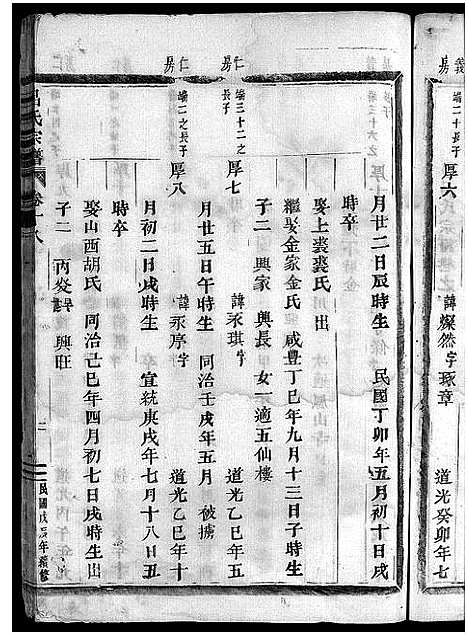 義房
端二十長子 厚六 諱燦然字琢章 道光癸卯年七
月廿二日辰時生 民國丁卯年五月初十日戌
時卒
娶上裘裘氏出
繼娶金家金氏 咸豊丁巳年九月十三日子時生
子二 興家 興長 女一適五仙樓
仁房
端三十二之長子 厚七 諱永琪字 道光乙巳年五
月廿五日午時生 同治壬戌年五月 被擄
仁房
端二之長子 厚八 諱永序字 道光乙巳年十
月初二日戌時生 宣統庚戌年七月十八日丑
時卒
娶山西胡氏 同治己巳年四月初七日戌時生出
子二 丙焱 興旺
呂氏宗譜 卷十八
民國戊辰年續修